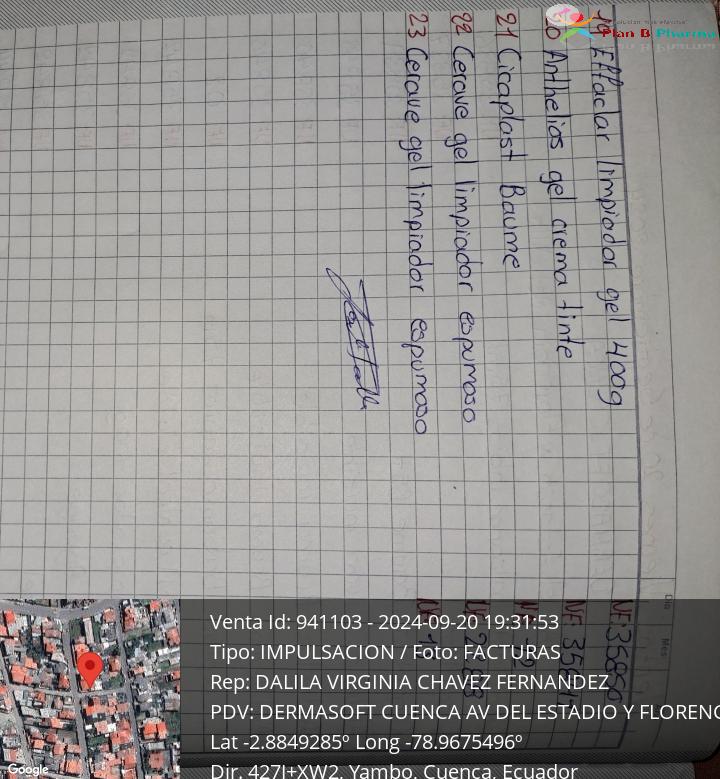 Plan B Pharma
19 Effaclar limpiador gel 400g
20 Anthelios gel crema tinte
21 Cicaplast Baume
22 Cerave gel limpiador espumoso
23 Cerave gel limpiador espumoso
Venta Id: 941103 - 2024-09-20 19:31:53
Tipo: IMPULSACION / Foto: FACTURAS
Rep: DALILA VIRGINIA CHAVEZ FERNANDEZ
PDV: DERMASOFT CUENCA AV DEL ESTADIO Y FLORENC
Lat -2.8849285º Long -78.9675496º
Dir. 427J+XW2, Yambo, Cuenca, Ecuador
Google